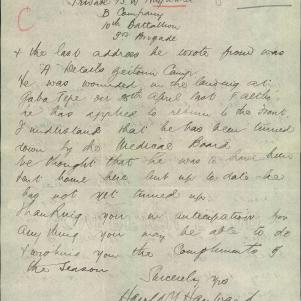 Private
B Company
10th Battalion
3rd Brigade
& the last address he wrote from was
"A" Details Camp.
He was wounded in the landing at
Gaba Tepe on April last & altho
he has applied to return to the Front
I understand that he has been turned
down by the Medical Board
We thought that he was to have been
sent home here but up to date he
has not yet turned up.
Thanking you in anticipation for
anything you may be able to do
& wishing you the Compliments of
the Season
Sincerely Yrs
Harold